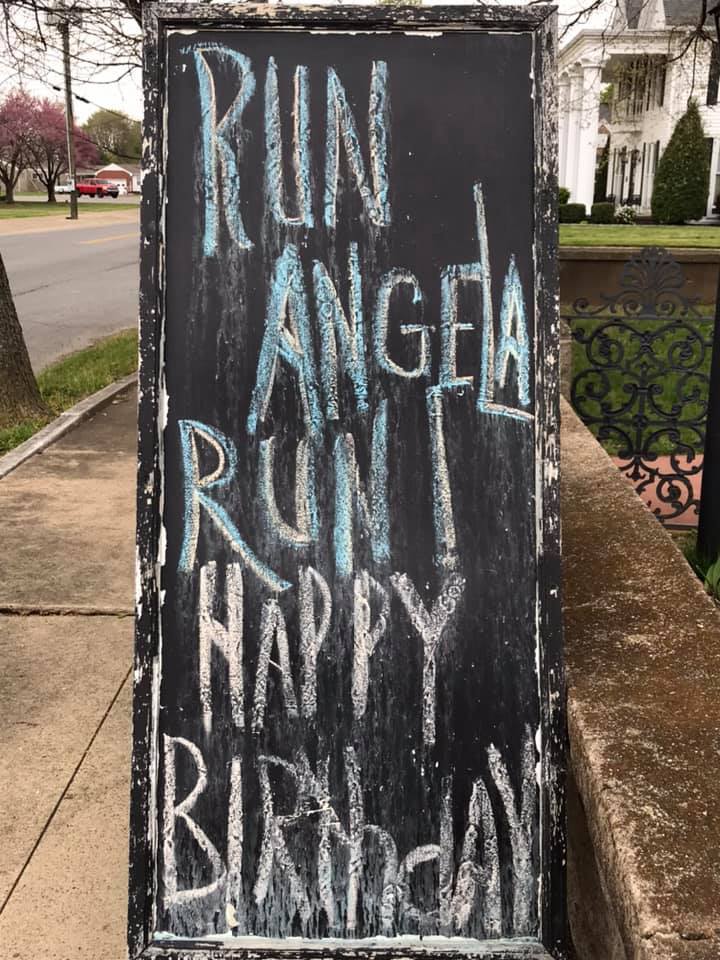 RUN
ANGELA
RUN!
HAPPY
BIRThdAY